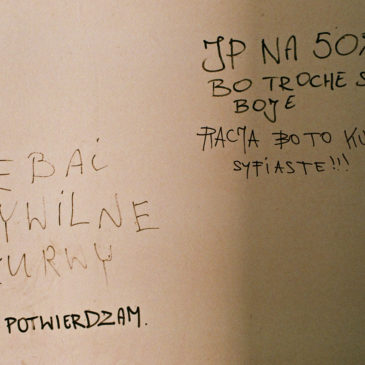 JP NA 50%
BO TROCHE S
BOJE
RACJA BO TO KU
SYFIASTE!!!
EBAĆ
YWILNE
KURWY
POTWIERDZAM.